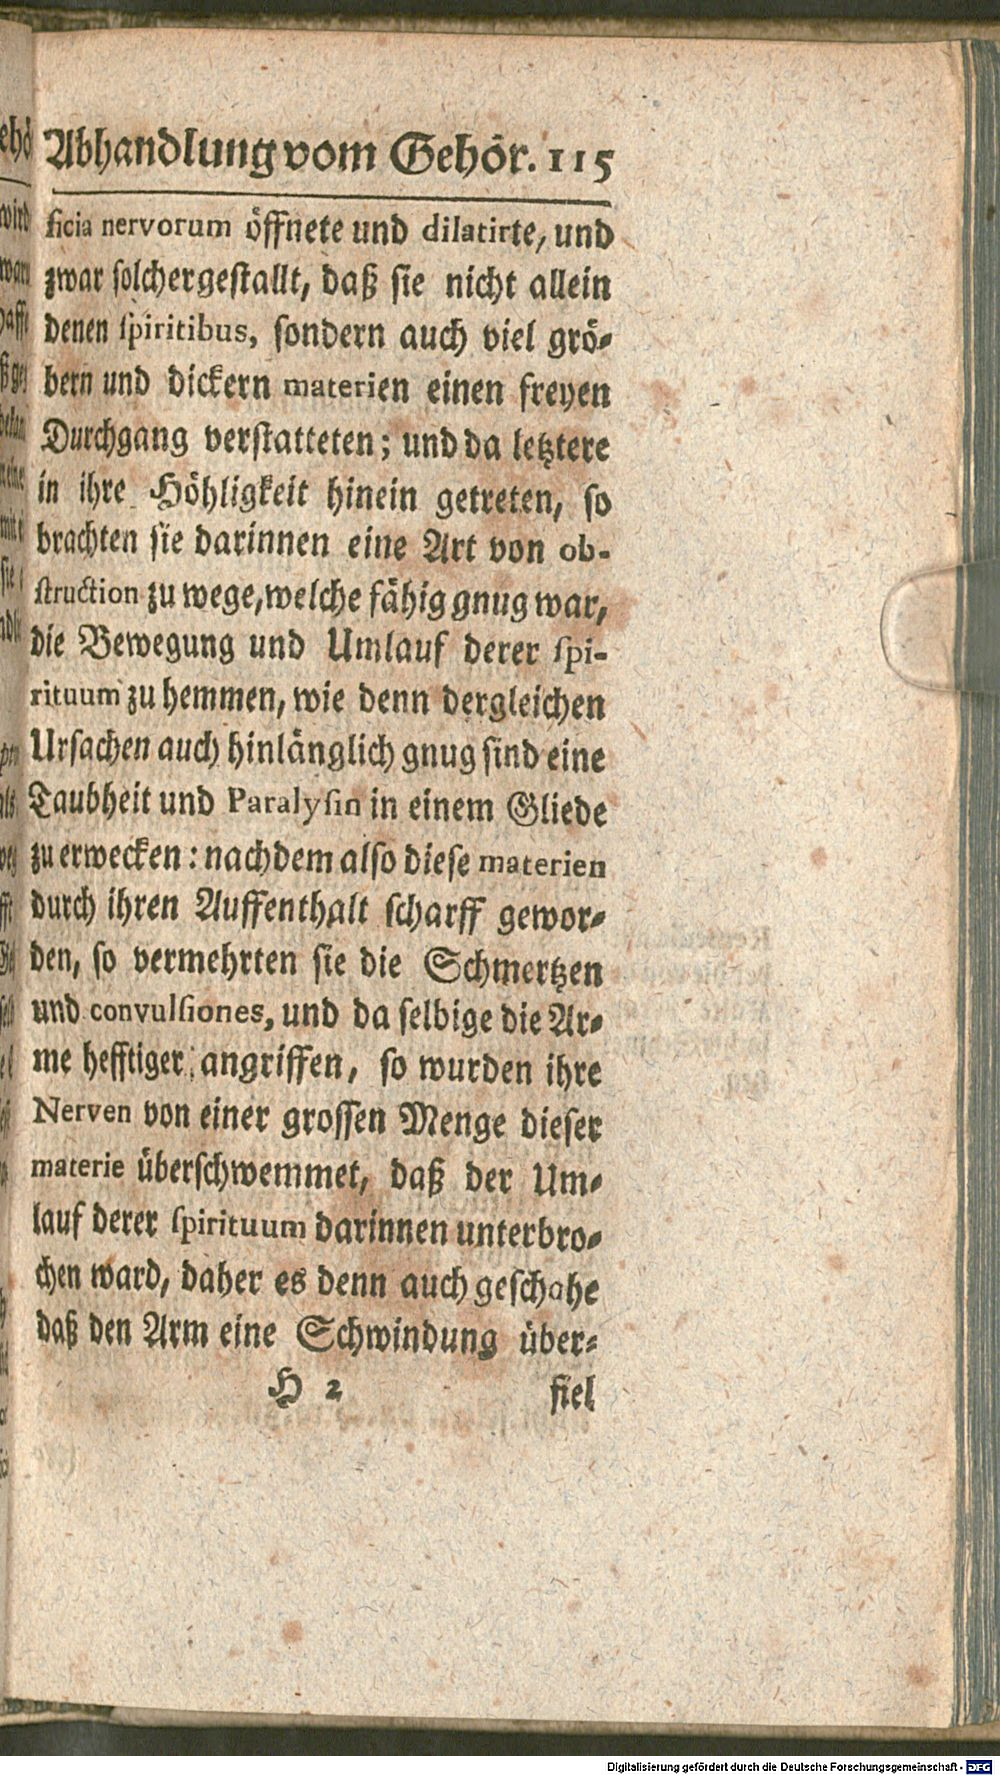 Abhandlung vom Gehör. 115
ficia nervorum öffnete und dilatirte, und
zwar solchergestallt, daß sie nicht allein
denen spiritibus, sondern auch viel grö-
bern und dickern materien einen freyen
Durchgang verstatteten; und da letztere
in ihre Höhligkeit hinein getreten, so
brachten sie darinnen eine Art von ob-
struction zu wege, welche fähig gnug war,
die Bewegung und Umlauf derer spi-
rituum zu hemmen, wie denn dergleichen
Ursachen auch hinlänglich gnug sind eine
Taubheit und Paralysin in einem Gliede
zu erwecken: nachdem also diese materien
durch ihren Auffenthalt scharff gewor-
den, so vermehrten sie die Schmertzen
und convulsiones, und da selbige die Ar-
me hefftiger angriffen, so wurden ihre
Nerven von einer grossen Menge dieser
materie überschwemmet, daß der Um-
lauf derer spirituum darinnen unterbro-
chen ward, daher es denn auch geschahe
daß den Arm eine Schwindung über-
H 2 fiel
Digitalisierung gefördert durch die Deutsche Forschungsgemeinschaft - DFG